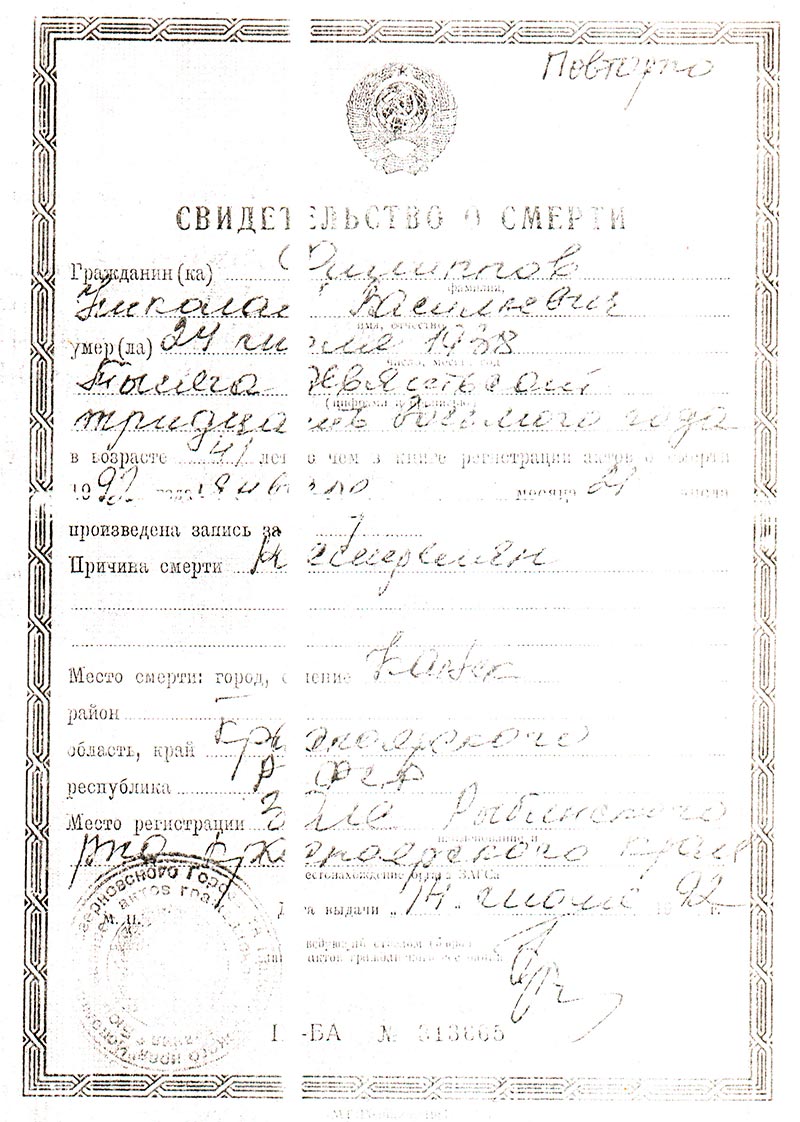 Повторно
СВИДЕТЕЛЬСТВО О СМЕРТИ
Гражданин(ка) Филиппов
фамилия,
Николай Васильевич
имя, отчество
умер(ла) 24 июля 1938
число, месяц, год
тысяча девятьсот
тридцать восьмого года
в возрасте 41 лет о чем в книге регистрации актов о смерти
1992 года января месяца 21 числа
произведена запись за
Причина смерти расстрелян
Место смерти: город, селение Канск
район
область, край Красноярского
республика РСФСР
Место регистрации ЗАГС Рыбинского
наименование и
р-на Красноярского края
местонахождение органа ЗАГСа
М. П. Дата выдачи „14 июля 1992 г.
актов гражданского состояния
-БА № 313865